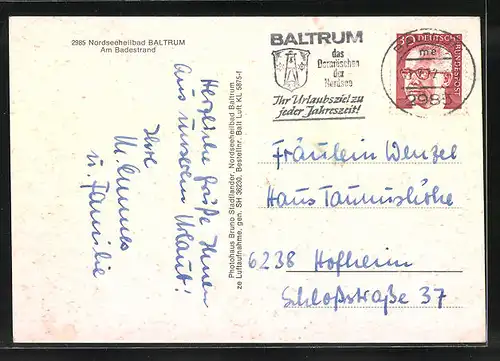 2985 Nordseeheilbad BALTRUM
Am Badestrand
BALTRUM
das
Dornröschen
der
Nordsee
Ihr Urlaubsziel zu
jeder Jahreszeit!
DEUTSCHE
BUNDESPOST
2985
Herzliche Grüße Ihnen
aus unserem Urlaub!
Ihre
u. Familie
Photohaus Bruno Stadtlander, Nordseeheilbad Baltrum
ze Luftaufnahme, gen. SH 36230, Bestellnr. Balt Luct KL 5875-f
Fräulein Wenzel
Haus Taunushöhe
6238 Hofheim
Schloßstraße 37